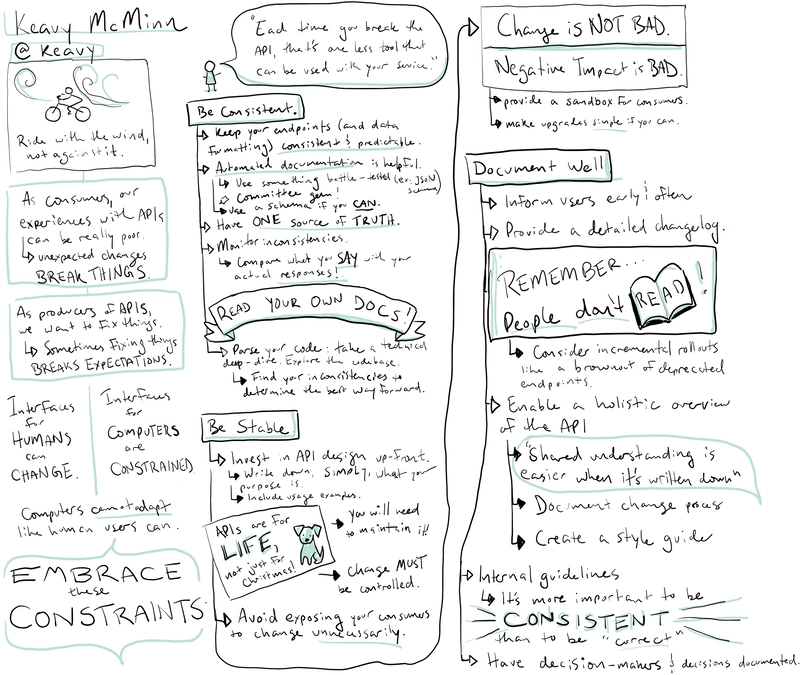 Keavy McMinn
@Keavy
Ride with the wind,
not against it.
As consumers, our
experiences with APIs
can be really poor.
↳ unexpected changes
BREAK THINGS.
As producers of APIs,
we want to fix things.
↳ Sometimes fixing things
BREAKS EXPECTATIONS.
Interfaces
for
HUMANS
can
CHANGE.
Interfaces
for
COMPUTERS
are
CONSTRAINED
Computers cannot adapt
like human users can.
EMBRACE
these
CONSTRAINTS
"Each time you break the
API, that's one less tool that
can be used with your service."
Be Consistent.
Keep your endpoints (and data
formatting) consistent & predictable.
Automated documentation is helpful.
↳ Use something battle-tested (ex: JSON
schema)
Committee gem!
Use a schema if you CAN.
Have ONE source of TRUTH.
Monitor inconsistencies.
↳ Compare what you SAY with your
actual responses!
READ YOUR OWN DOCS!
Parse your code: take a technical
deep-dive. Explore the codebase.
↳ Find your inconsistencies to
determine the best way forward.
Be Stable
Invest in API design up-front.
↳ Write down, SIMPLY, what your
purpose is.
↳ Include usage examples.
APIs are for
LIFE,
not just for
Christmas!
you will need
to maintain it!
change MUST
be controlled.
Avoid exposing your consumers
to change unnecessarily.
Change is NOT BAD.
Negative Impact is BAD.
provide a sandbox for consumers.
make upgrades simple if you can.
Document Well
Inform users early & often
Provide a detailed changelog.
REMEMBER...
People don't READ!
↳ Consider incremental rollouts
like a brownout of deprecated
endpoints.
Enable a holistic overview
of the API
"Shared understanding is
easier when it's written down"
Document change process
Create a style guide
Internal guidelines
↳ It's more important to be
CONSISTENT
than to be "correct"
Have decision-makers & decisions documented.